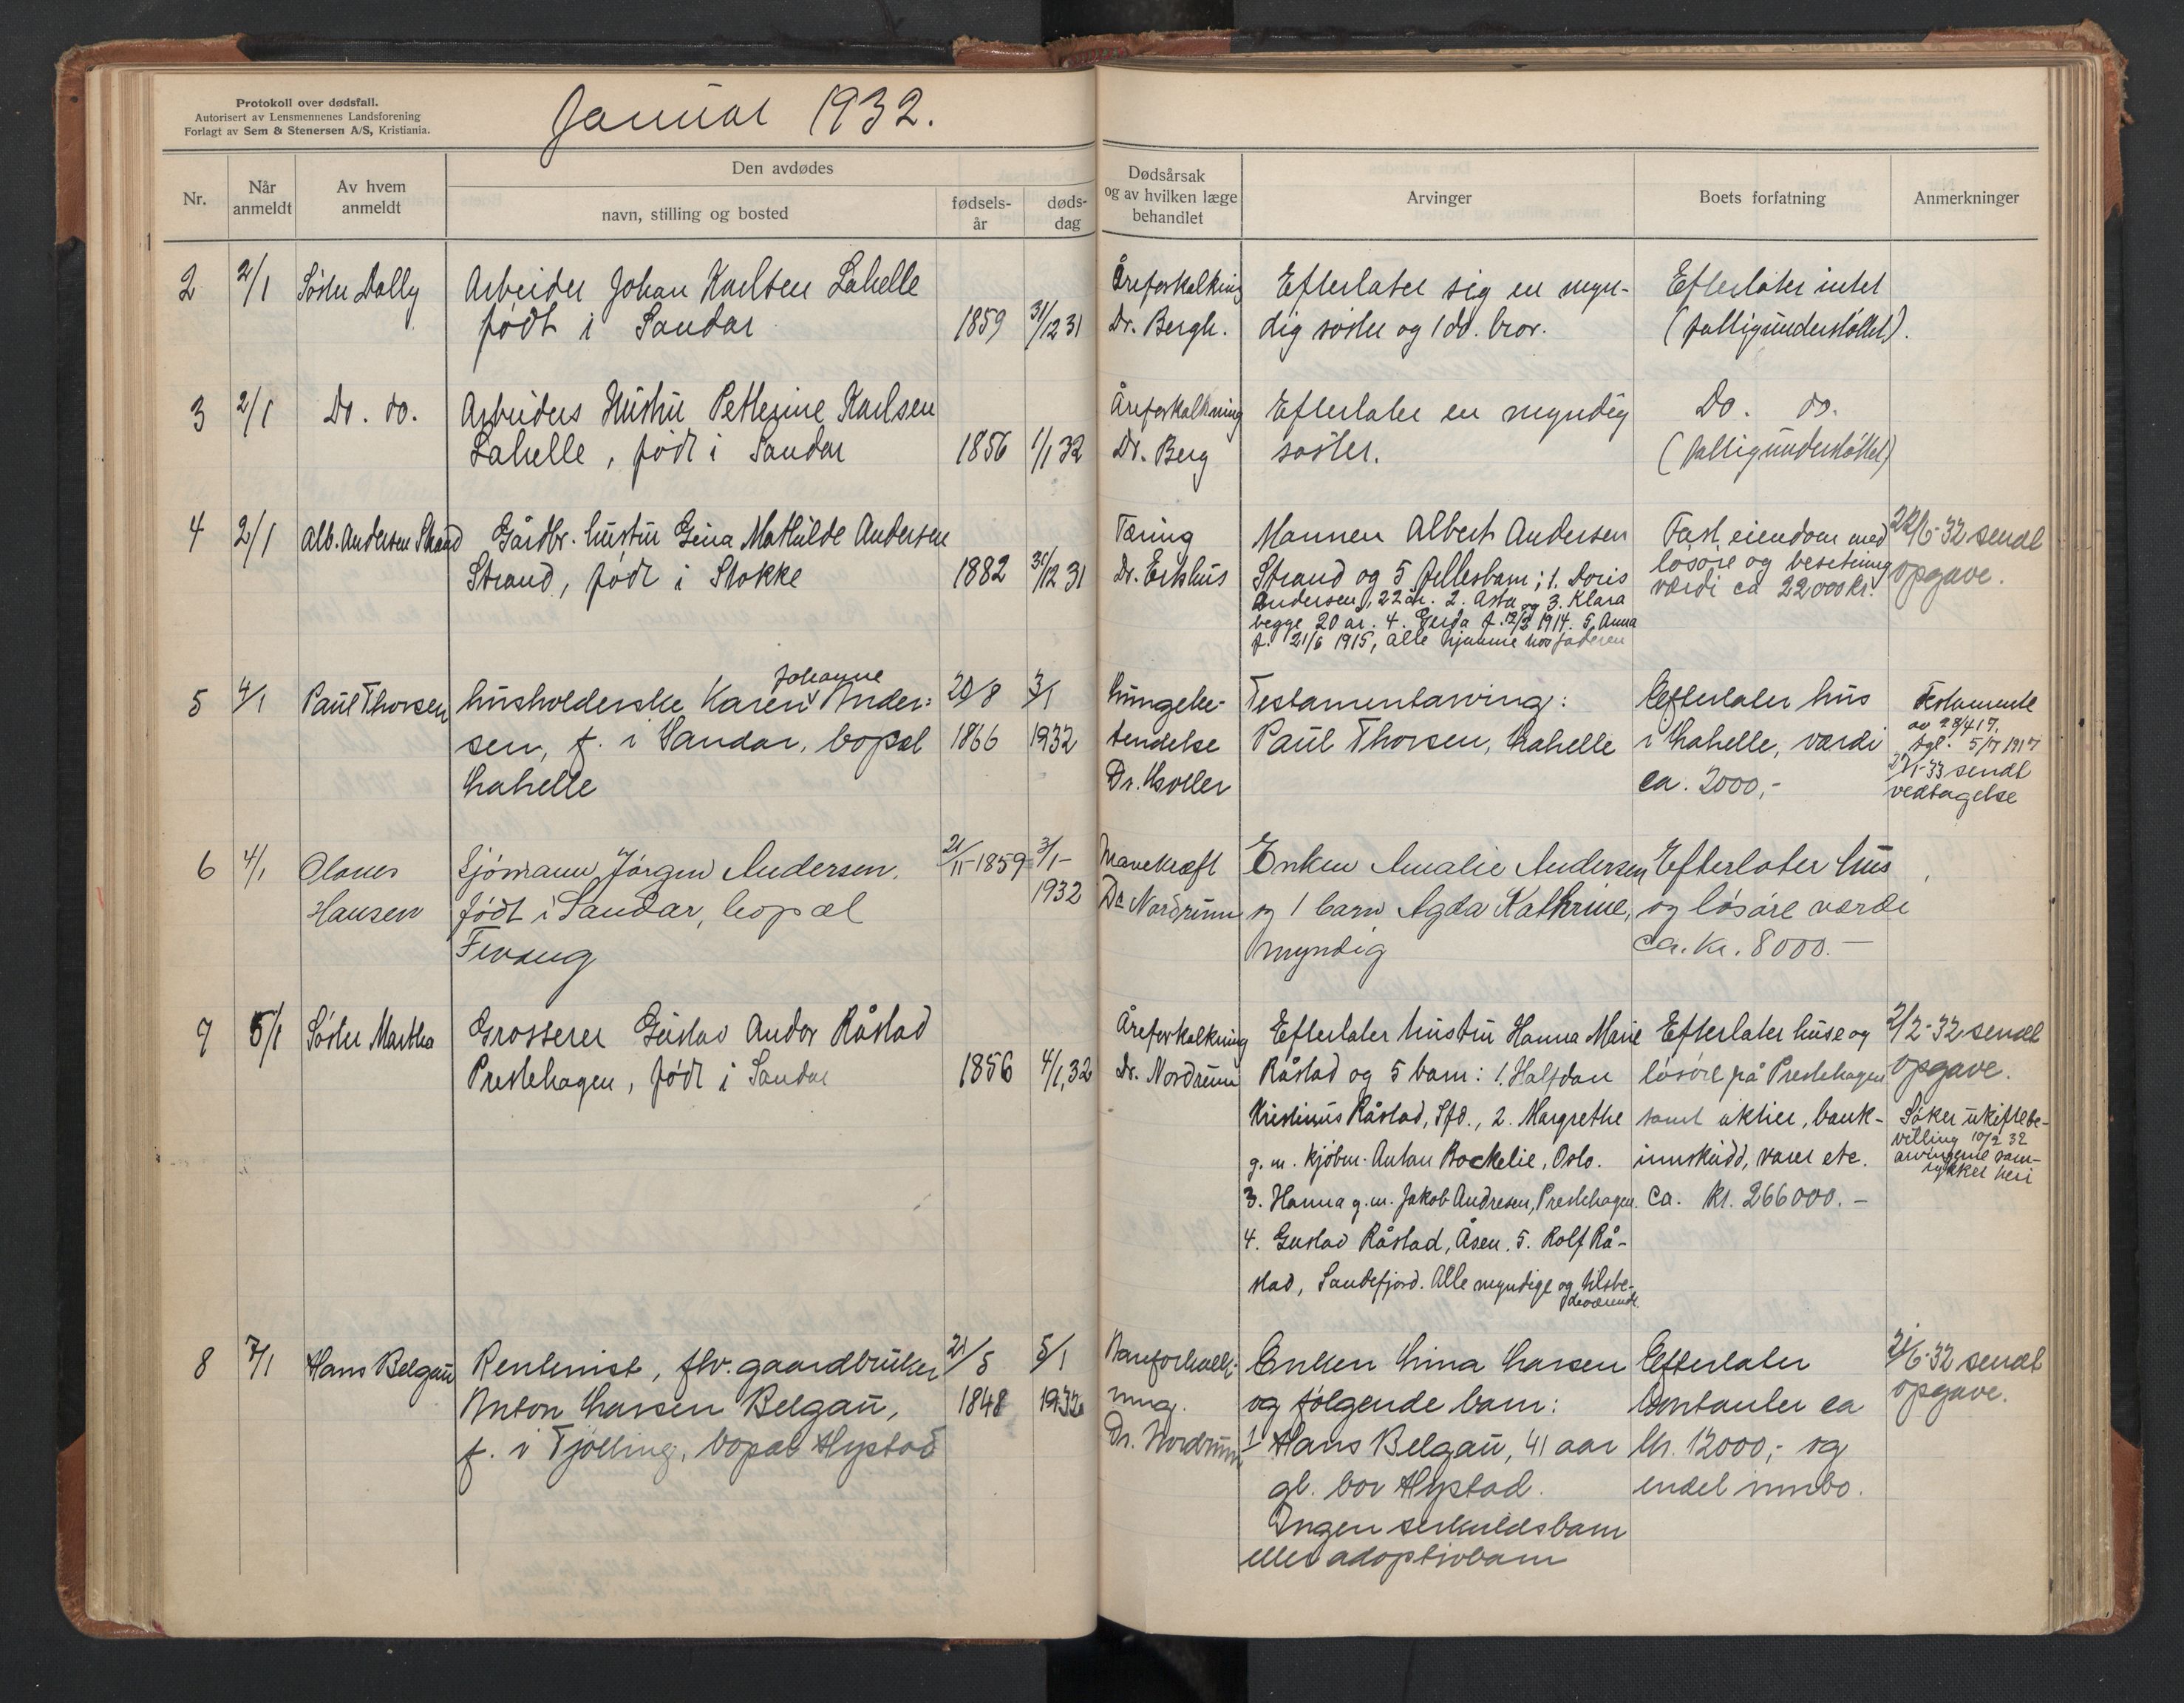 Protokoll over dødsfall.
Autorisert av Lensmennenes Landsforening
Forlagt av Sem & Stenersen A/S, Kristiania.
Januar 1932.
Nr.
Når anmeldt
Av hvem anmeldt
Den avdødes
navn, stilling og bosted
fødsels-år
døds-dag
Dødsårsak og av hvilken læge behandlet
Arvinger
Boets forfatning
Anmerkninger
2 2/1 Söster Dolly
Arbeider Johan Karlsen Lahelle
født i Sandar 1859 31/12 31
Åreforkalking
Dr. Bergh.
Efterlater sig en myn-
dig söster og 1 dd. bror.
Efterlater intet
(fattigunderstöttet).
3 2/1 Do. do.
Arbeiders Hustru Petterine Karlsen
Lahelle, født i Sandar 1856 1/1 32
Åreforkalkning
Dr. Berg
Efterlater en myndig
söster.
Do. do.
(fattigunderstöttet)
4 2/1 Alb. Andersen Strand
Gårdbr. hustru Gina Mathilde Andersen
Strand, født i Stokke 1882 31/12 31
Tæring
Dr. Eikshus
Mannen Albert Andersen
Strand og 5 fellesbarn; 1. Doris
Andersen, 22 år. 2. Asta og 3. Klara
begge 20 år. 4. Gerda f. 12/3 1914. 5. Anna
f. 21/6 1915, alle hjemme hos faderen
Fast eiendom med
lösöre og besetning
værdi ca 22000 kr.
22/6-32 sendt
opgave.
5 4/1 Paul Thorsen
husholderske Karen Johanne Ander-
sen, f. i Sandar, bopæl
Lahelle
20/8 1866
3/1 1932
Lungebe-
tendelse
Dr. Holler
Testamentarving:
Paul Thorsen, Lahelle
Efterlater hus
i Lahelle, værdi
ca. 2000,-
Testamente
av 28/4 17.
tgl. 5/7 1917
2/1-33 sendt
vedtagelse
6 4/1 Olaues
Hansen
Sjömann Jörgen Andersen.
født i Sandar, bopæl
Fevang
21/11-1859
3/1-1932
Mavekræft
Dr Nordrum
Enken Amalie Andersen
og 1 barn Agda Kathrine,
myndig
Efterlater hus
og lösöre værdi
ca. kr. 8000.-
7 5/1 Söster Martha
Grosserer Gustav Andor Råstad
Prestehagen, født i Sandar 1856 4/1, 32
Åreforkalkning
Dr. Nordrum
Efterlater hustru Hanna Marie
Råstad og 5 barn: 1. Halfdan
Kristinus Råstad, Sfd., 2. Margrethe
g. m. kjöbm. Anton Bockelie, Oslo.
3. Hanna g.m. Jakob Andresen, Prestehagen.
4. Gustav Råstad, Åsen. 5. Rolf Rå-
stad, Sandefjord. Alle myndige og tilste-
deværende.
Efterlater huse og
lösöre på Prestehagen
samt aktier, bank-
innskudd, varer etc.
ca. kr. 266000.-
2/2-32 sendt
opgave.
Söker uskiftebe-
villing 10/2 32
arvingene sam-
tykket heri
8 7/1 Hans Belgau
Rentenist, fhv. gaardbruker
Anton Larsen Belgau,
f. i Tjölling, bopæl Hystad
21/5 1848
5/1 1932
Aareforkalk-
ning.
Dr. Nordrum
Enken Lina Larsen
og følgende barn:
1 Hans Belgau, 41 aar
gl. bor Hystad.
Ingen serkuldsbarn
eller adoptivbarn
Efterlater
kontanter ca
kr. 12000,- og
endel innbo.
2/6-32 sendt
opgave.